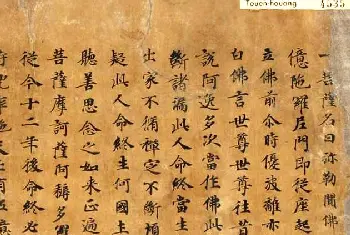 Touen-houang
一菩薩名曰弥勒聞佛
億陁羅尼門即從座起
立佛前尒時優波離亦
白佛言世尊世尊往昔
說阿逸多次當作佛此
斷諸漏此人命終當生
出家不脩禪定不斷
疑此人命終生何國土
聽善思念之如来正遍
菩薩摩訶薩阿耨多羅
從今十二年後命終必